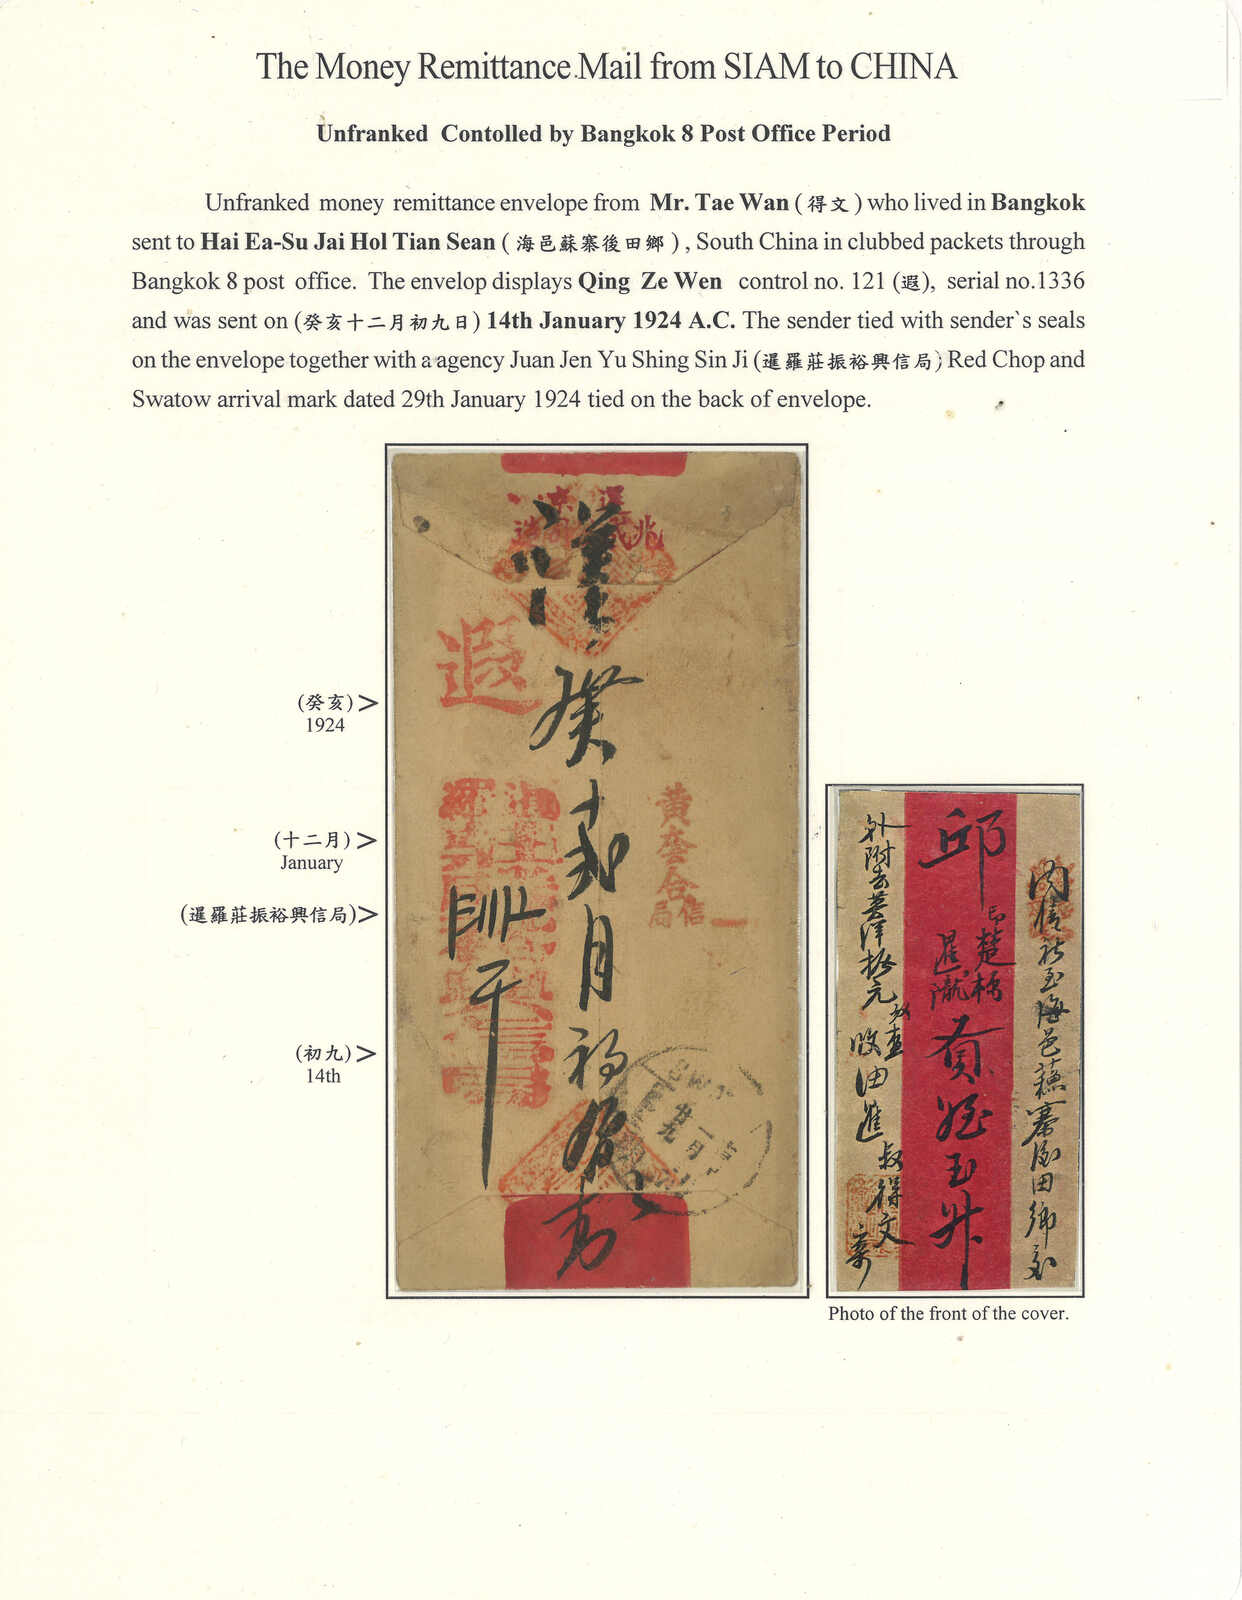 The Money Remittance Mail from SIAM to CHINA
Unfranked Contolled by Bangkok 8 Post Office Period
Unfranked money remittance envelope from Mr. Tae Wan (得文) who lived in Bangkok
sent to Hai Ea-Su Jai Hol Tian Sean (海邑蘇寨後田鄉), South China in clubbed packets through
Bangkok 8 post office. The envelop displays Qing Ze Wen control no. 121 (遐), serial no.1336
and was sent on (癸亥十二月初九日) 14th January 1924 A.C. The sender tied with sender`s seals
on the envelope together with a agency Juan Jen Yu Shing Sin Ji (暹羅莊振裕興信局) Red Chop and
Swatow arrival mark dated 29th January 1924 tied on the back of envelope.
遐
癸亥
十弍月
初
(癸亥) >
1924
(十二月) >
January
(暹羅莊振裕興信局) >
(初九) >
14th
黃
合
信局
一月
廿九
內信祈至海邑蘇寨後田鄉交
邱
即楚橋
暹隴
賢姪玉升
外附去英洋拾元
收
叔得文
Photo of the front of the cover.